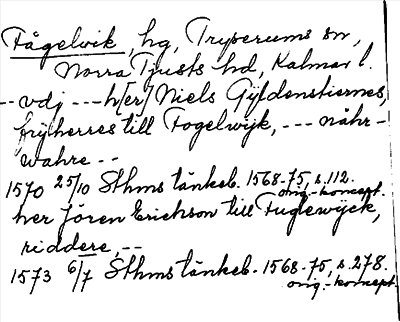 Fågelvik, hg, Tryserums sn,
Norra Tjusts hd, Kalmar l.
-- vdj --- h[er] Niels Gyldenstiernes,
frijherres till Fogelwijk, --- nåhr-
wahre --
1570 25/10 Sthms tänkeb. 1568-75, s. 112.
orig.-koncept.
her Jören Erichson till Fuglewijck,
riddere, --
1573 6/7 Sthms tänkeb. 1568-75, s. 278.
orig.-koncept.